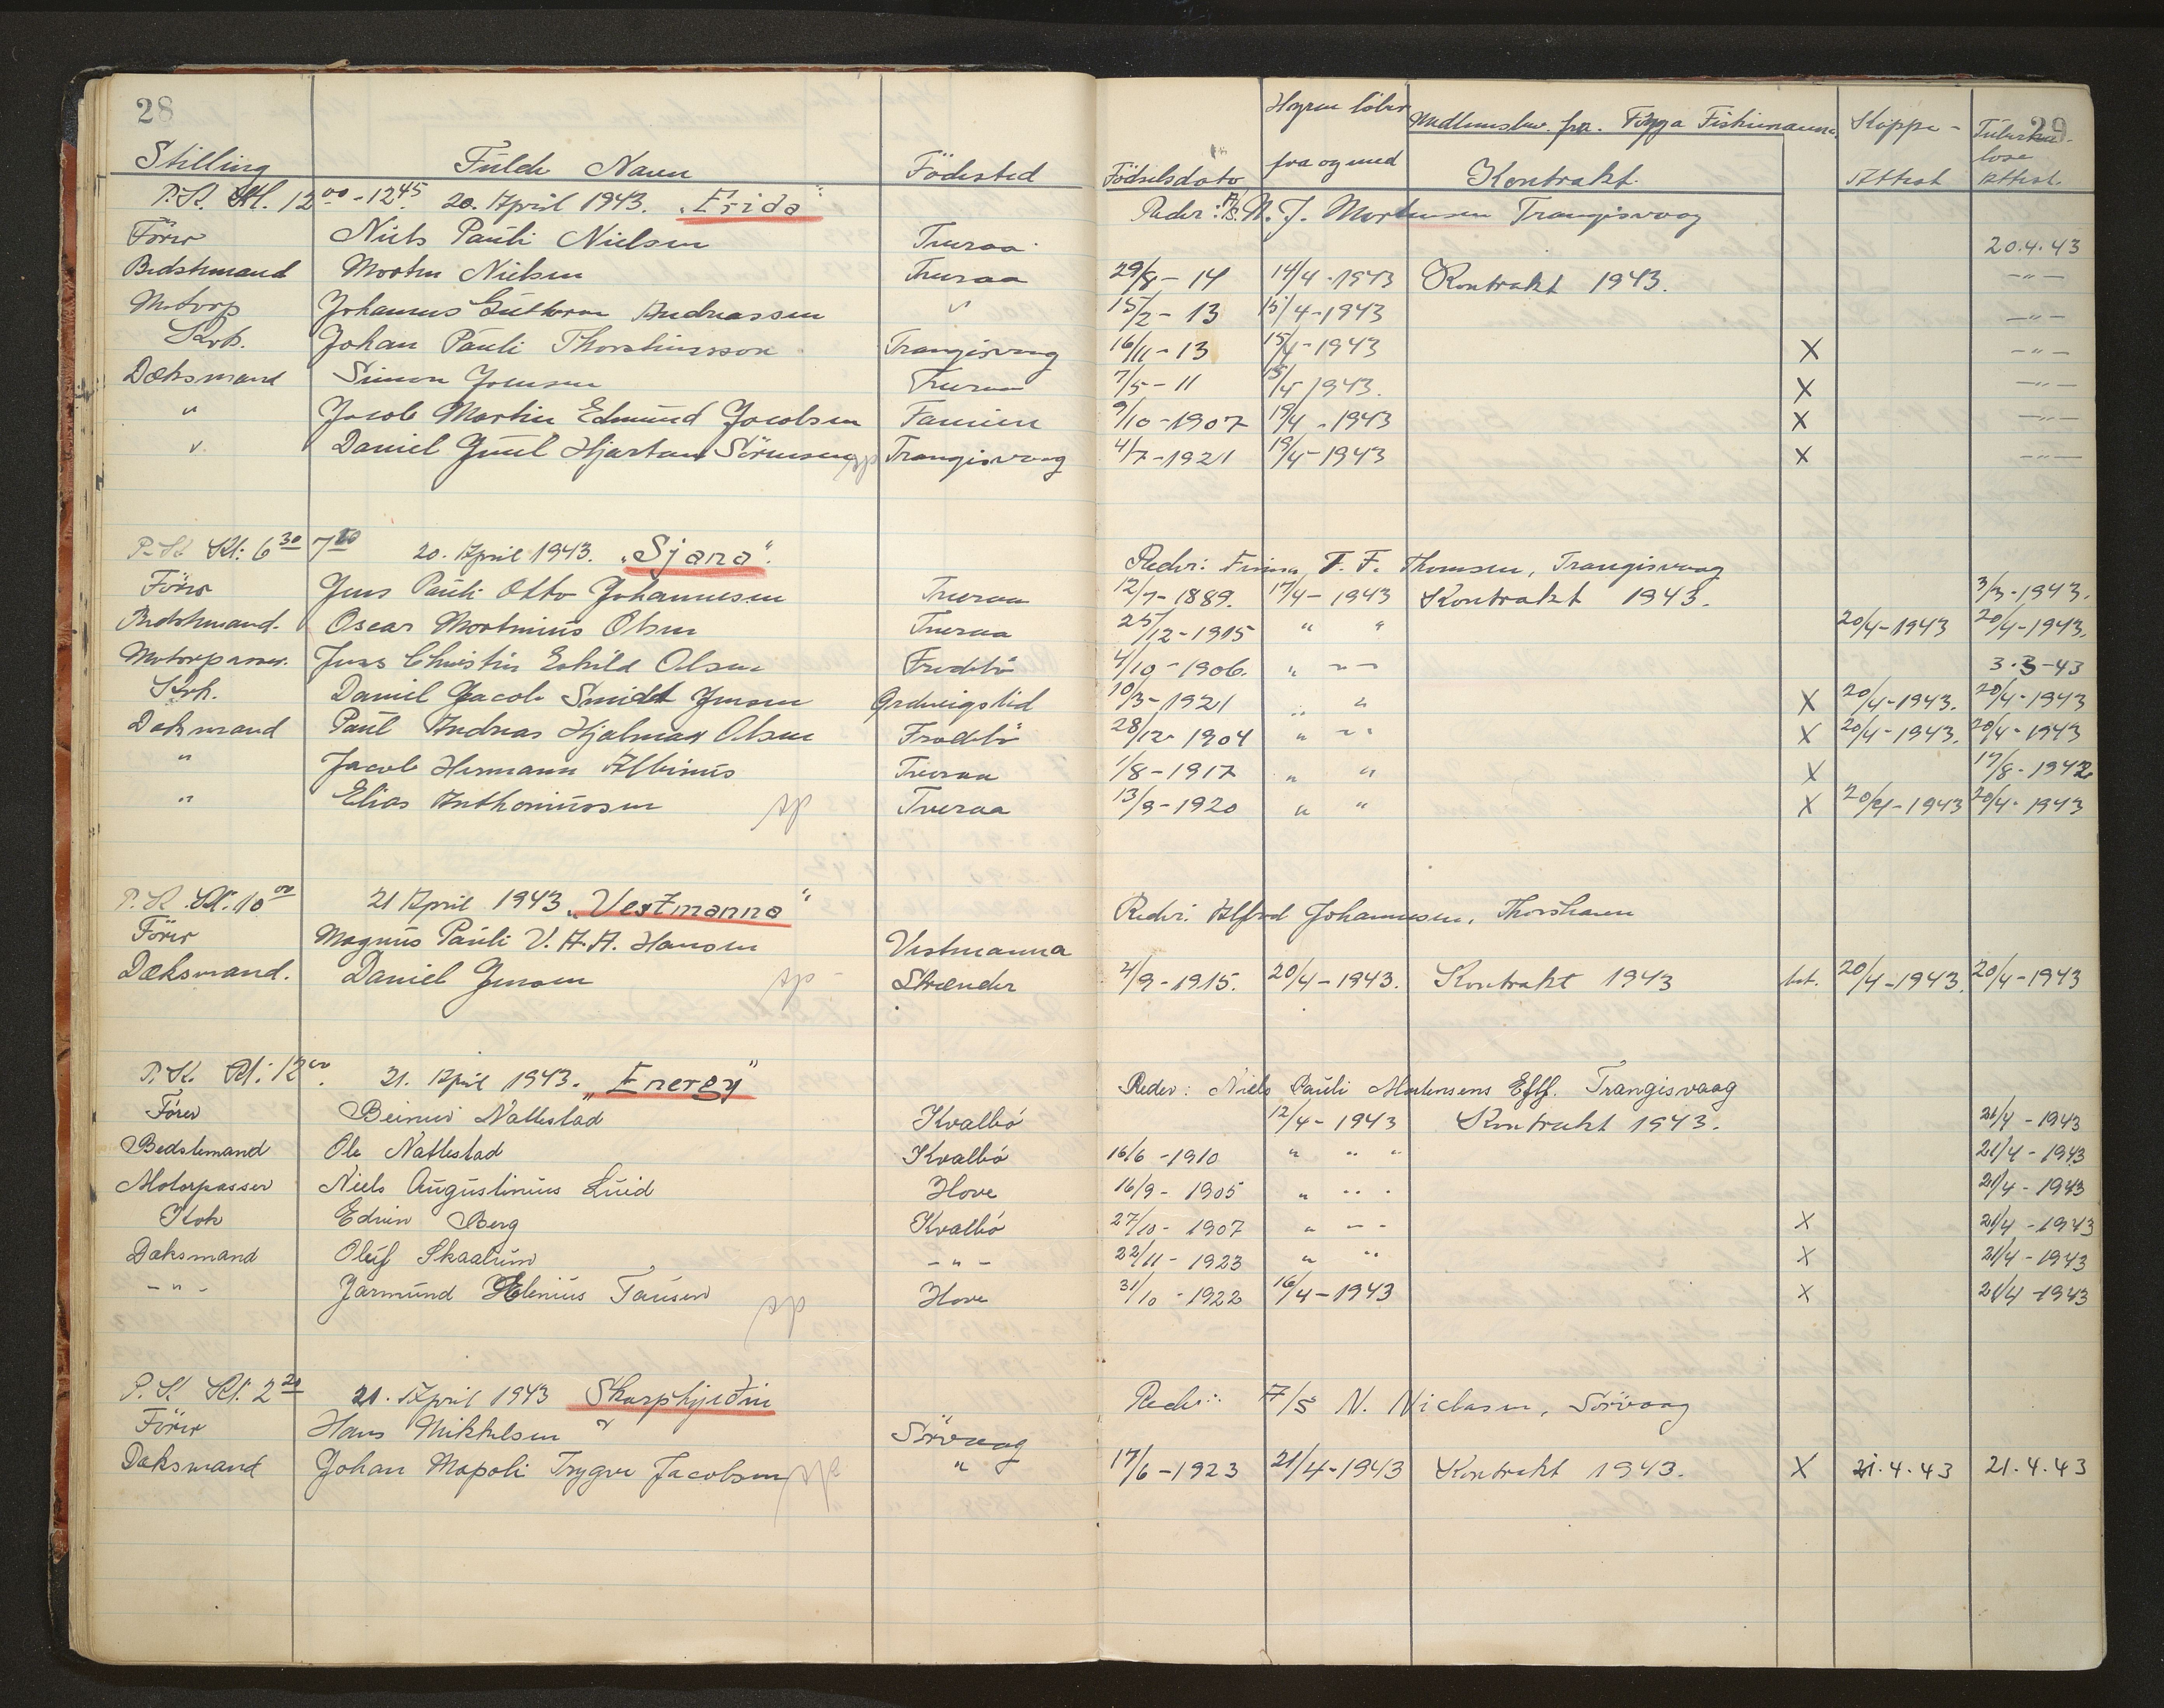 28
29
Stilling Fulde Navn Födested Födselsdato Hyren löber fra og med Medlemsbev. fra Föroya Fiskimannaf. Kontrakt. Koppe-Attest Tuberkulose Attest.
P.K. Kl. 12 00 - 12 45 20. April 1943. "Frida" Reder: A/S. N. J. Mortensen Trangisvaag
Förer Niels Pauli Nielsen Tveraa 20.4.43
Bedstemand Morten Nielsen Tveraa 29/8 - 14 14/4 - 1943 Kontrakt 1943. -"-
Motorp Johannes Guttorm Andreassen " 15/2 - 13 15/4-1943 -"-
Kok. Johan Pauli Thorsteinsson Trangisvaag 16/11 - 13 15/4-1943 X -"-
Dæksmand Simon Joensen Tveraa 7/5 - 11 15/4 1943. X -"-
" Jacob Martin Edmund Jacobsen Famien 9/10 -1907 19/4 -1943 X -"-
" Daniel Juul Hjartan Sörensen sp Trangisvaag 4/7-1921 19/4-1943 X -"-
P.K. Kl: 6 30 7 20 20. April 1943. "Sjana". Reder: Firma T. F. Thomsen, Trangisvaag
Förer Jens Pauli Otto Johannesen Tveraa 12/7-1889. 17/4 - 1943 Kontrakt 1943. 3/3-1943.
Bedstemand. Oscar Mortinius Olsen Tveraa 25/12-1915 " " 20/4-1943 20/4-1943.
Motorpasser. Jens Christin Eskild Olsen Frodebö 4/10 - 1906. " -- 3.3-43
Kok. Daniel Jacob Smidt Jensen Ordevigslid 10/3-1921 " " X 20/4-1943. 20/4-1943
Dæksmand Paul Andreas Hjalmar Olsen Frodebö 28/12-1904 " -- X 20/4-1943. 20/4-1943
" Jacob Hermann Albinus Tveraa 1/8-1917 " " X 17/8-1942
" Elias Anthoniussen sp Tveraa 13/9-1920 " " X 20/4-1943 20/4-1943
P.K. Kl. 10 00 21 April 1943 "Vestmanna" Reder: Alfred Johannesen, Thorshavn
Förer Magnus Pauli V. A. A. Hansen Vestmanna
Dæksmand. Daniel Jensen sp - Strænder 2/9-1915. 20/4-1943. Kontrakt 1943 bet. 20/4-1943. 20/4-1943
P.K. Kl: 12 00. 21. April 1943. "Energy" Reder: Niels Pauli Mortensens Eftf. Trangisvaag
Förer Beinir Nattestad Kvalbö 12/4-1943 Kontrakt 1943. 21/4 - 1943
Bedstemand Ole Nattestad Kvalbö 16/6 -1910 " " " 21/4 - 1943
Motorpasser Niels Augustinius Luid Hove 16/9- 1905 " " " 21/4 - 1943
Kok Edvin Berg Kvalbö 27/10- 1907 " - - X 21/4 - 1943
Dæksmand Oluf Skaalum - " - 22/11 - 1923 " " X 21/4 - 1943
- " - Jarmund Elenius Tausen sp Hove 31/10 - 1922 16/4-1943 X 21/4 -1943
P.K. Kl. 2 20 21. April 1943 Skarphjeðin Reder: A/S N. Niclasen, Sörvaag
Förer Hans Mikkelsen Sörvaag
Dæksmand Johan Mapoli Trygve Jacobsen sp " 17/6 -1923 21/4-1943 Kontrakt 1943. X 21.4.43 21.4.43